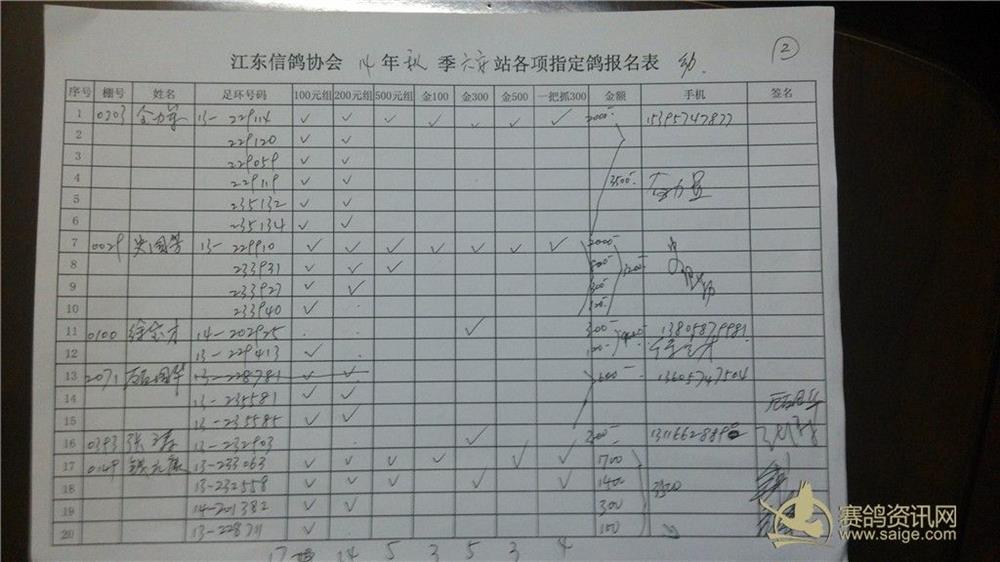 ②
江东信鸽协会 14 年 秋 季 六安 站各项指定鸽报名表
序号 棚号 姓名 足环号码 100元组 200元组 500元组 金100 金300 金500 一把抓300 金额 手机 签名
1 0303 13-229114 ✓ ✓ ✓ ✓ ✓ ✓ ✓ 2000 15395747877
2 229120 ✓ ✓
3 229059 ✓ ✓
4 229119 ✓ ✓ 3500
5 235132 ✓ ✓
6 235134 ✓ ✓
7 0029 13-229910 ✓ ✓ ✓ ✓ ✓ ✓ ✓ 2000
8 233931 ✓ ✓ ✓ 800 3200
9 233927 ✓ ✓ 300
10 233940 ✓ 100
11 0100 徐宝才 14-202925 ✓ 300 13805879981
12 13-229413 ✓ 100
13 2071 13-228781 ✓ ✓ 600 13605747504
14 13-235581 ✓ ✓
15 13-235585 ✓ ✓
16 0393 张 13-232903 ✓ 300
17 0149 钱元康 13-233063 ✓ ✓ ✓ ✓ ✓ ✓ 1700
18 13-232558 ✓ ✓ ✓ ✓ ✓ 1400 3500
19 14-201382 ✓ ✓ 300
20 13-228711 ✓ 100
17 14 5 3 5 3 4
赛鸽资讯网
www.saige.com